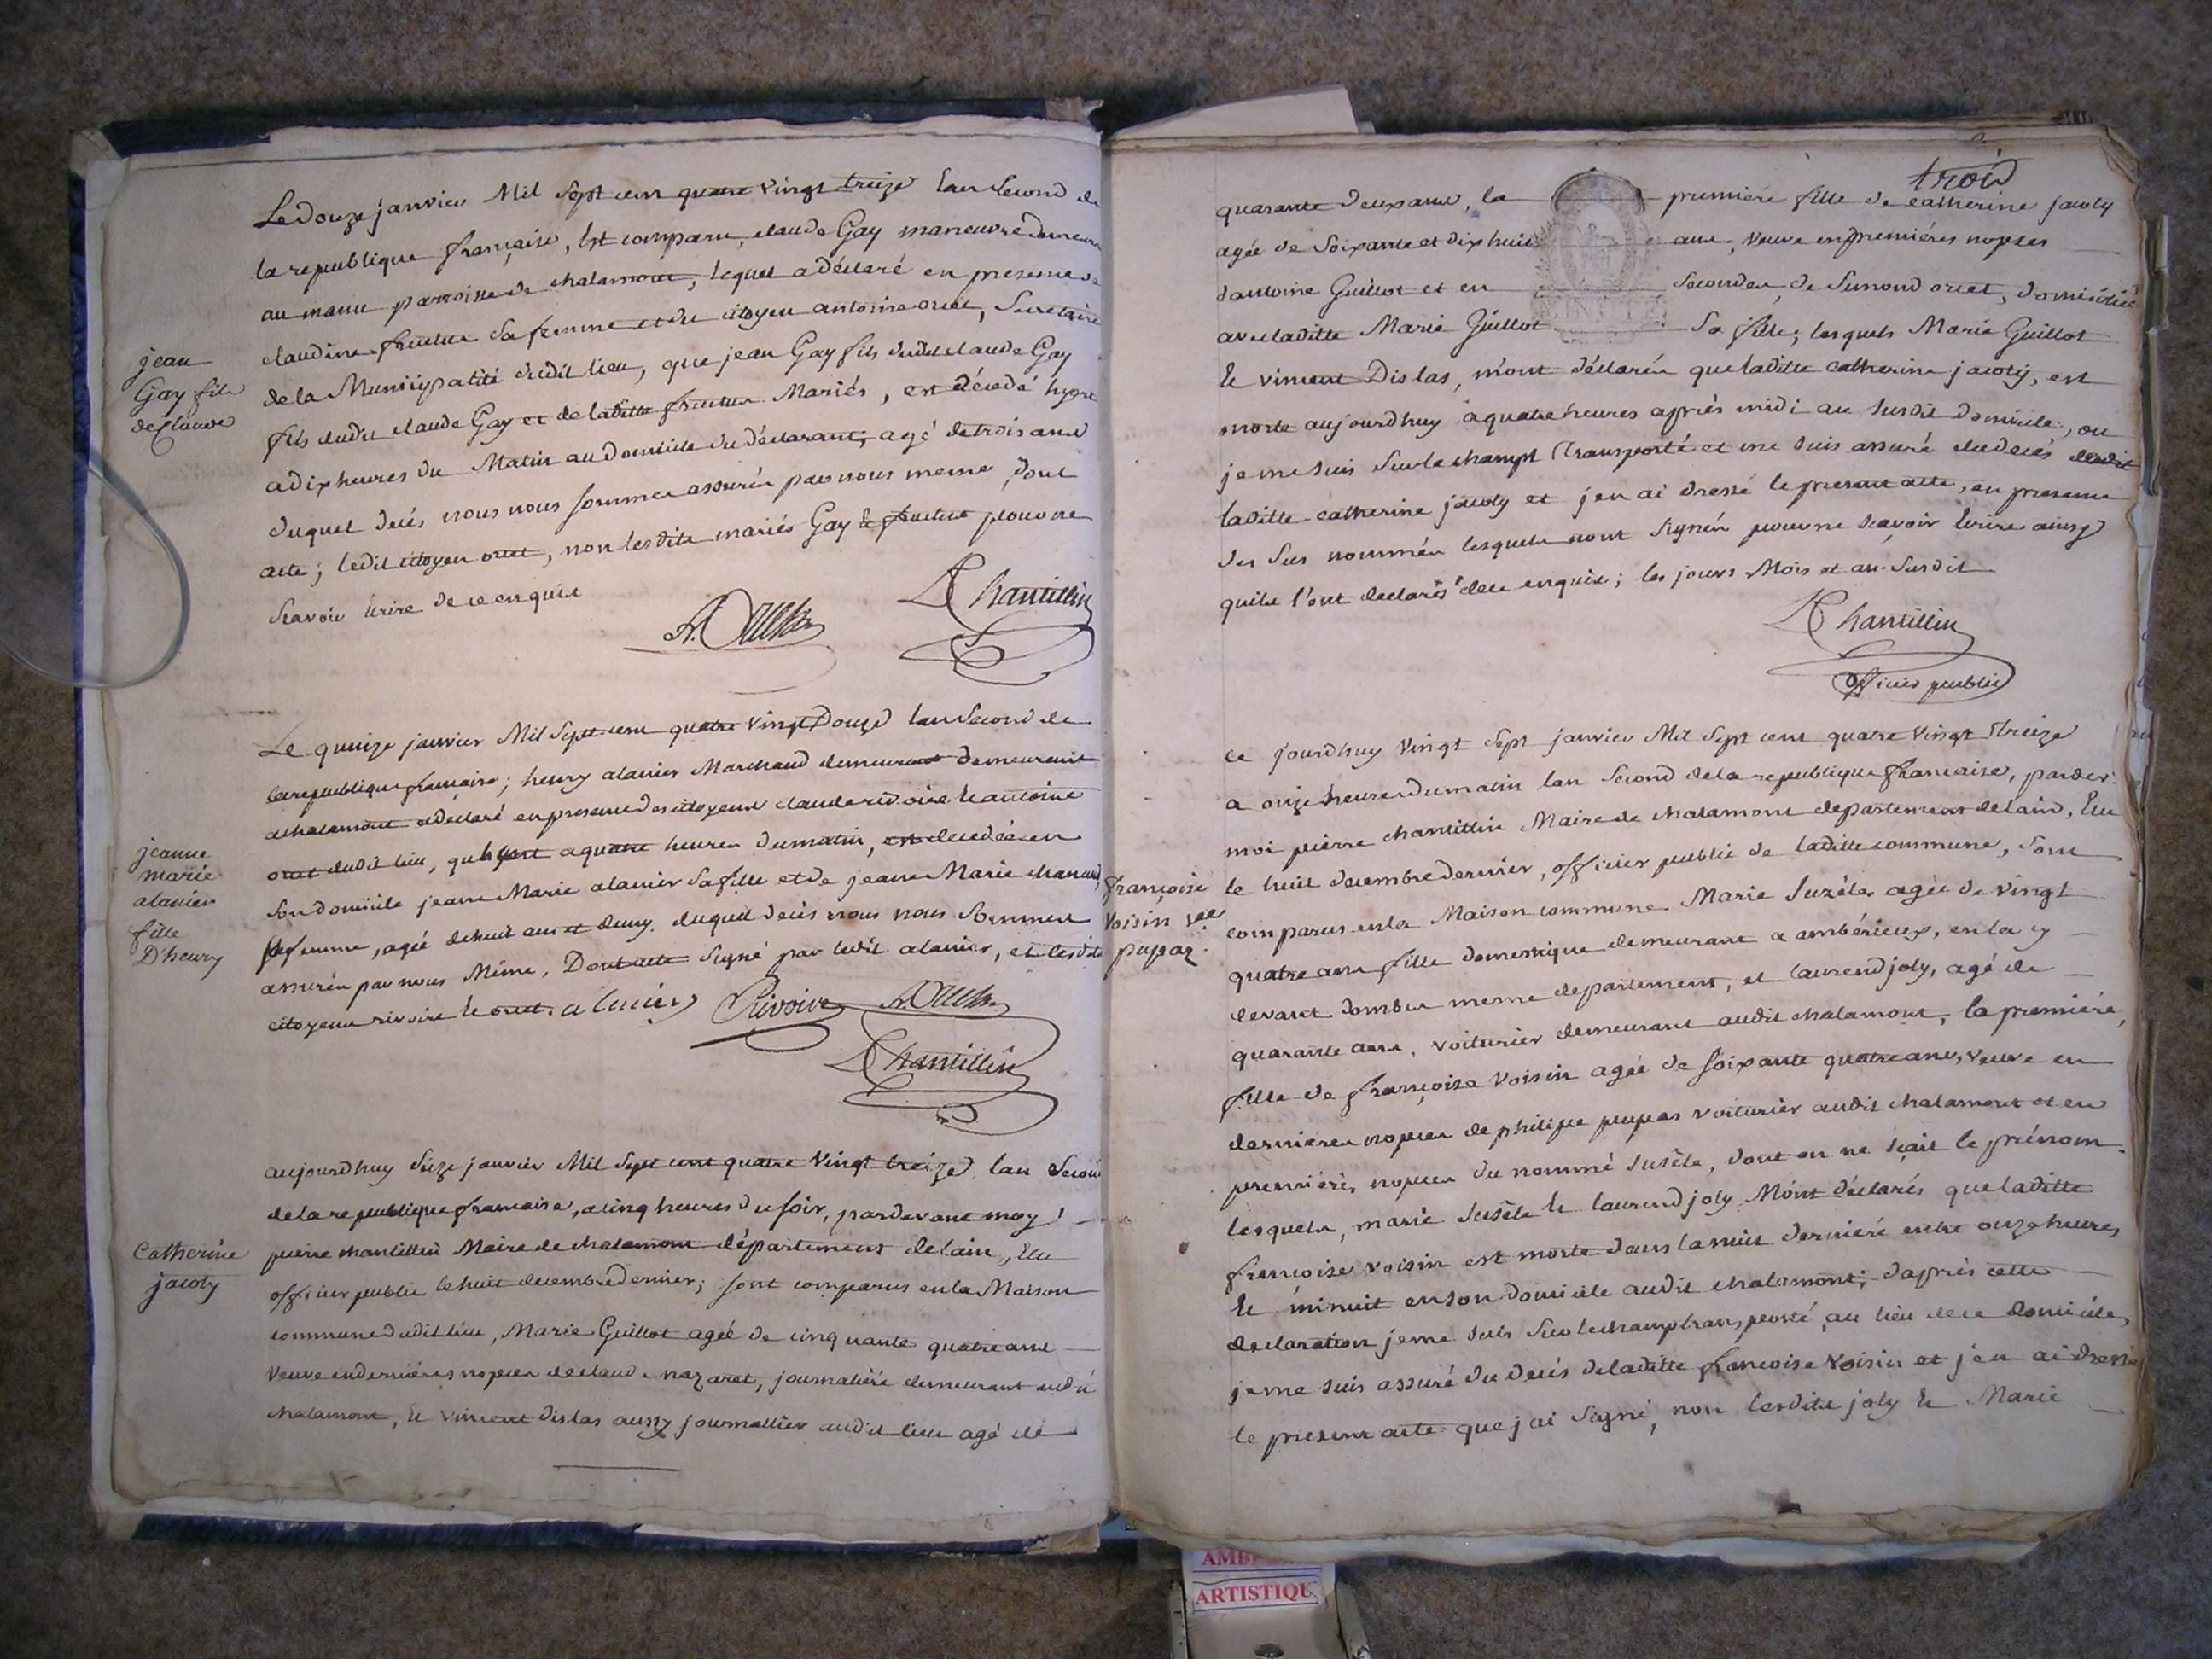 Le douze janvier Mil Sept cent quatre vingt treize lan Second de
la republique française, Est comparu, claude Gay manoeuvre
au parroisse de chalamont, lequel a déclaré en presence de
claudine sa femme et du citoyen antoine oriet, Secretaire
de la Municipalité dudit lieu, que jean Gay fils dudit claude Gay
fils dudit claude Gay et de laditte Mariés, est décédé hyer
a dix heures du Matin au domicile du déclarant, agé de trois ans
duquel decés nous nous sommes assurés par nous meme, dont
acte; ledit citoyen oriet, non lesdits mariés Gay et pour ne
Scavoir écrire de ce enquis
jean
Gay fils
de Claude
Chantillin
Le quinze janvier Mil Sept cent quatre vingt Douze lan Second de
la republique française; henry alanier Marchand demeurant demeurant
a chalamont a déclaré en presence des citoyens claude rivoire et antoine
oriet dudit lieu, qu'hyere a quatre heures du matin, est decedée en
son domicile jeane Marie alanier Sa fille et de jeane Marie
Sa femme, agée de huit ans et demy, duquel decés nous nous Sommes
assurés par nous Même, Dont acte Signé par ledit alanier, et lesdits
citoyens rivoire et oriet. alanier Rivoire
jeanne
marie
alanier
fille
D'henry
Chantillin
aujourdhuy Seize janvier Mil Sept cent quatre Vingt treize lan Second
de la republique francaise, a cinq heures du soir, pardevant moy
pierre chantillin Maire de chalamont département de lain, Elu
officier public le huit decembre dernier; sont comparus en la Maison
commune dudit lieu, Marie Guillot agée de cinquante quatre ans
Veuve en dernières nopces de claude nazaret, journalière demeurant audit
chalamont, et Vincent dislas aussy journallier audit lieu agé de
Catherine
jacoly
trois
quarante deux ans, la première fille de catherine jacoly
agée de Soixante et dix huit ans, Veuve en premières nopces
d'antoine Guillot et en Secondes, de Simond oriet, domiciliée
avec laditte Marie Guillot Sa fille; lesquels Marie Guillot
et vincent Dislas, m'ont déclarés que laditte catherine jacoly, est
morte aujourdhuy a quatre heures après midi au Susdit domicile, ou
je me suis Sur le champt Transporté et me suis assuré du decés dudit
laditte catherine jacoly et j'en ai dressé le present acte, en presence
des Sus nommés lesquels n'ont Signés pour ne scavoir Ecrire ainsy
qu'ils l'ont declarés de ce enquis; les jours Mois et an Susdit
Chantillin
officier public
ce jourdhuy Vingt Sept janvier Mil Sept cent quatre Vingt Treize
a onze heures du matin lan Second de la republique française, pardev
moi pierre chantillin Maire de chalamont departement de lain, Elu
le huit decembre dernier, officier public de laditte commune, Sont
comparus en la Maison commune Marie Suzéle agée de vingt
quatre ans fille domestique demeurant a ambérieux, en la cy
devant dombes meme departement, et laurend joly, agé de
quarante ans, voiturier demeurant audit chalamont, la première,
fille de françoise Voisin agée de Soixante quatre ans, Veuve en
dernieres nopces de philipe pupas voiturier audit chalamont et en
premières nopces du nommé Suséle, dont on ne sçait le prénom
lesquels, marie Suséle et laurend joly M'ont déclarés que laditte
françoise voisin est morte dans la nuit dernière entre onze heures
et minuit en son domicile audit chalamont; d'après cette
declaration je me suis Sur le champ transporté, au lieu de ce domicile,
je me suis assuré du decés de laditte françoise Voisin et j'en ai dressé
le present acte que j'ai Signé, non lesdits joly et Marie
françoise
Voisin Vve
pupaz
AMB
ARTISTIQU